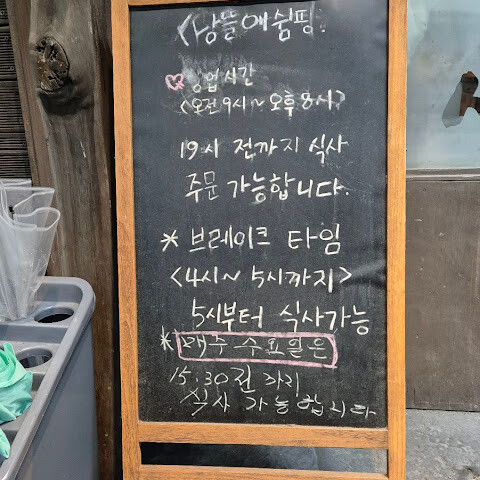 <상뜰애쉼핑>
영업시간
<오전9시~오후8시>
19시 전까지 식사
주문 가능합니다.
* 브레이크 타임
<4시~5시까지>
5시부터 식사가능
* 매주 수요일은
15:30전까지
식사 가능합니다